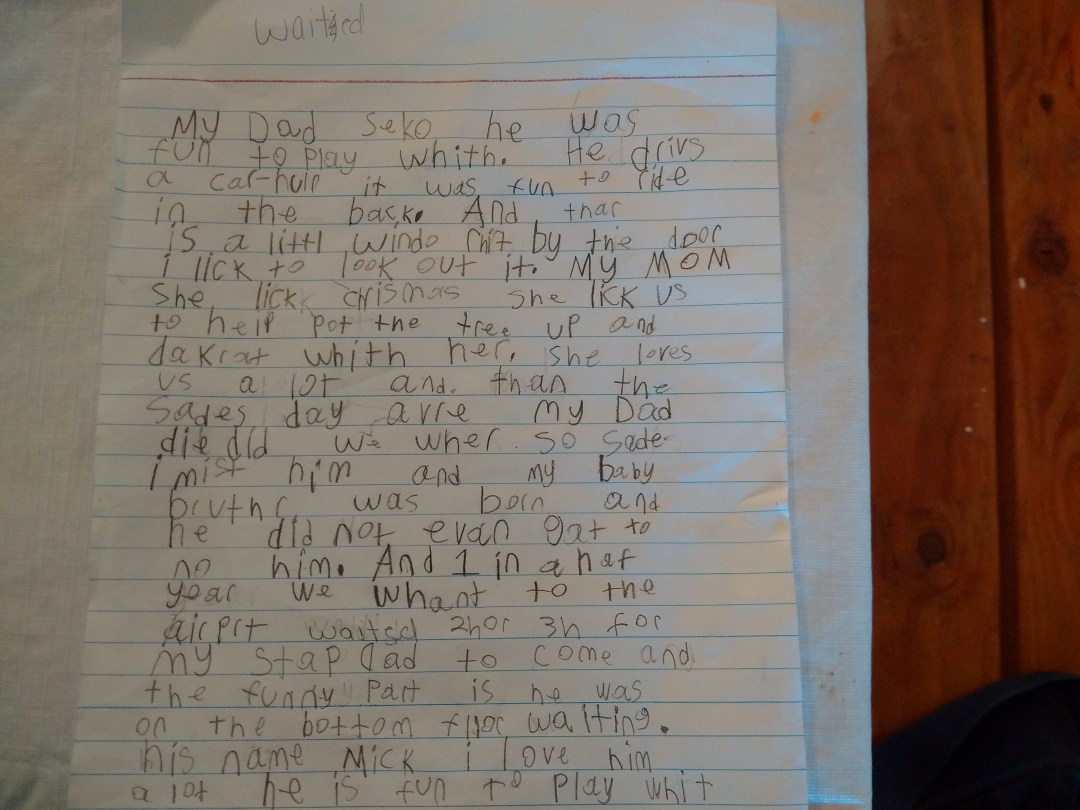 waitsed
My Dad Seko he was
fun to play whith. He drivs
a car-hulr it was fun to ride
in the back. And thar
is a littl windo rhit by the door
i lick to look out it. My MOM
She lick crismas she lick us
to help pot the tree up and
dakrat whith her. She loves
us a lot and. than the
Sades day avre my Dad
die did we wher so sade
i mist him and my baby
bruthr was born and
he did not evan gat to
no him. And 1 in a haf
year we whant to the
airprt waitsd 2hor 3h for
my stap dad to come and
the funny part is he was
on the bottom flor waiting.
his name Mick i love him
a lot he is fun to play whit